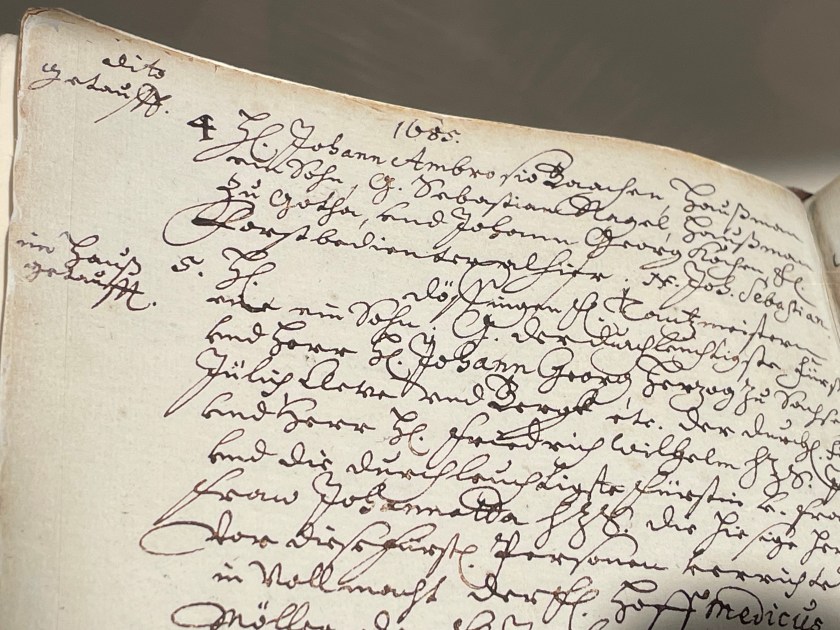 dito
getaufft.
1685.
4 H. Johann Ambrosio Baachen, Haußman
ein Sohn, G. Sebastian Nagel, Haußman
zu Gotha, und Johann Georg Kochen, F.
Forstbedienter alhier. N. Joh. Sebastian
im Hauß
getaufft.
5. H. Tantzmeistern
ein Sohn, G. der durchleuchtigste Fürst
und Herr H. Johann Georg Herzog zu Sachs
Jülich Cleve und Berge etc. der durchl.
und Herr H. Friedrich Wilhelm HzS.
und die durchleuchtigste Fürstin u. Fraw
Fraw Johannetta HzS. die hiesige
Vor diese Fürstl. Personen verrichte
in Vollmacht der H. Hoff Medicus
Möller